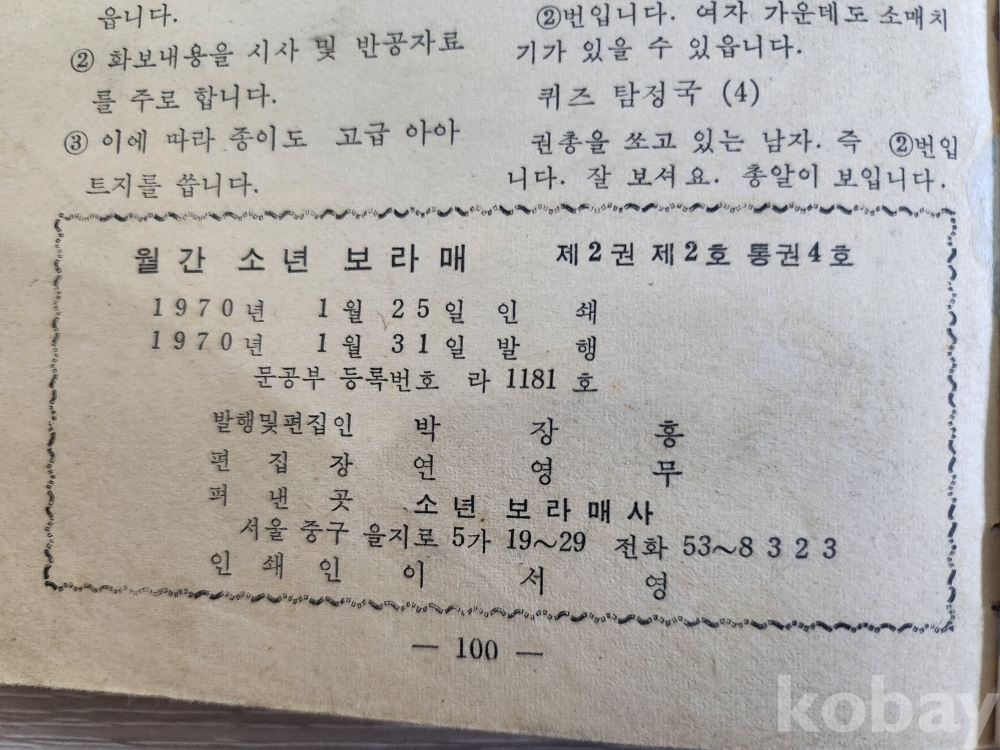 읍니다.
② 화보내용을 시사 및 반공자료
를 주로 합니다.
③ 이에 따라 종이도 고급 아아
트지를 씁니다.
②번입니다. 여자 가운데도 소매치
기가 있을 수 있읍니다.
퀴즈 탐정국 (4)
권총을 쏘고 있는 남자. 즉 ②번입
니다. 잘 보셔요. 총알이 보입니다.
월간 소년 보라매 제2권 제2호 통권4호
1970년 1월 25일 인 쇄
1970년 1월 31일 발 행
문공부 등록번호 라 1181 호
발행및편집인 박 장 흥
편 집 장 연 영 무
펴 낸 곳 소년 보라매사
서울 중구 을지로 5가 19~29 전화 53~8323
인 쇄 인 이 서 영
— 100 —
kobay